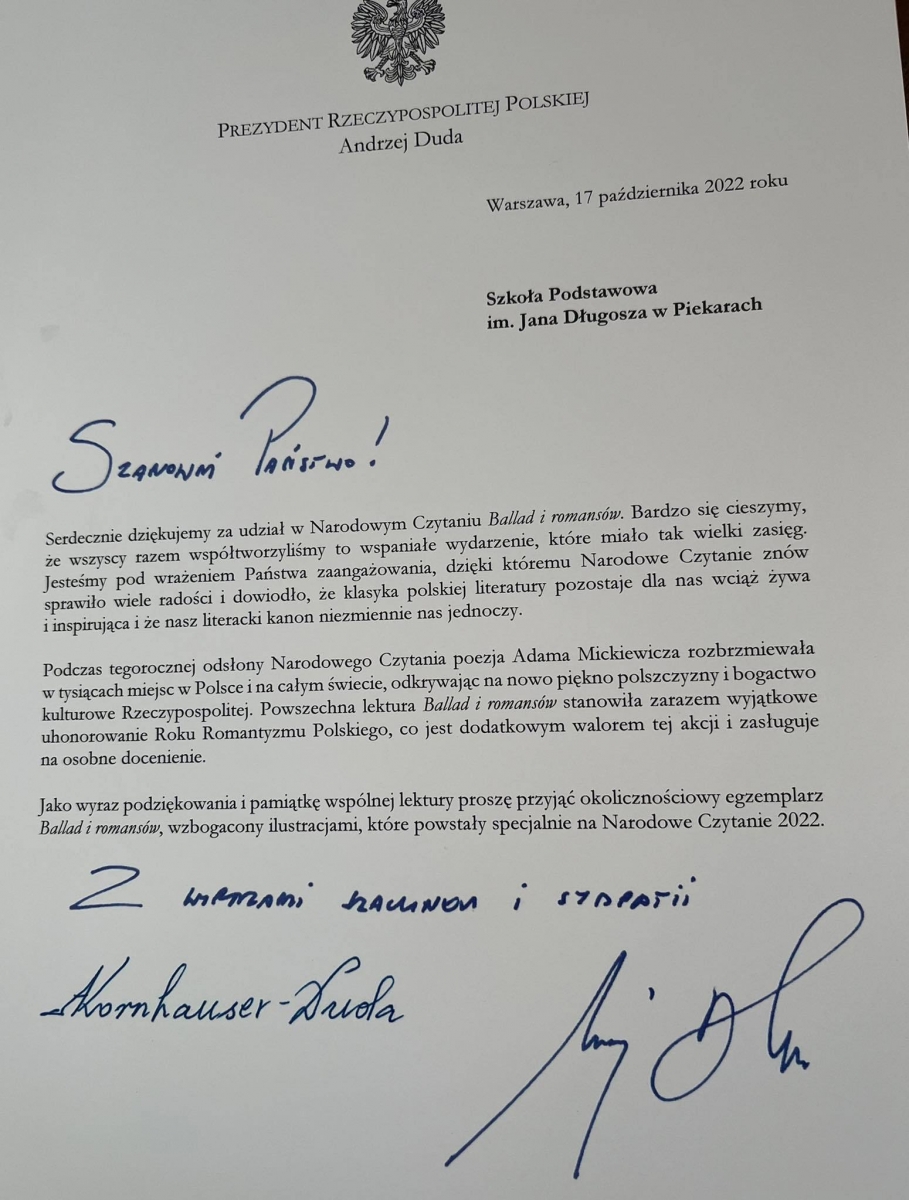 PREZYDENT RZECZYPOSPOLITEJ POLSKIEJ
Andrzej Duda
Warszawa, 17 października 2022 roku
Szkoła Podstawowa
im. Jana Długosza w Piekarach
Szanowni Państwo!
Serdecznie dziękujemy za udział w Narodowym Czytaniu Ballad i romansów. Bardzo się cieszymy,
że wszyscy razem współtworzyliśmy to wspaniałe wydarzenie, które miało tak wielki zasięg.
Jesteśmy pod wrażeniem Państwa zaangażowania, dzięki któremu Narodowe Czytanie znów
sprawiło wiele radości i dowiodło, że klasyka polskiej literatury pozostaje dla nas wciąż żywa
i inspirująca i że nasz literacki kanon niezmiennie nas jednoczy.
Podczas tegorocznej odsłony Narodowego Czytania poezja Adama Mickiewicza rozbrzmiewała
w tysiącach miejsc w Polsce i na całym świecie, odkrywając na nowo piękno polszczyzny i bogactwo
kulturowe Rzeczypospolitej. Powszechna lektura Ballad i romansów stanowiła zarazem wyjątkowe
uhonorowanie Roku Romantyzmu Polskiego, co jest dodatkowym walorem tej akcji i zasługuje
na osobne docenienie.
Jako wyraz podziękowania i pamiątkę wspólnej lektury proszę przyjąć okolicznościowy egzemplarz
Ballad i romansów, wzbogacony ilustracjami, które powstały specjalnie na Narodowe Czytanie 2022.
Z wyrazami szacunku i sympatii
AKornhauser-Duda